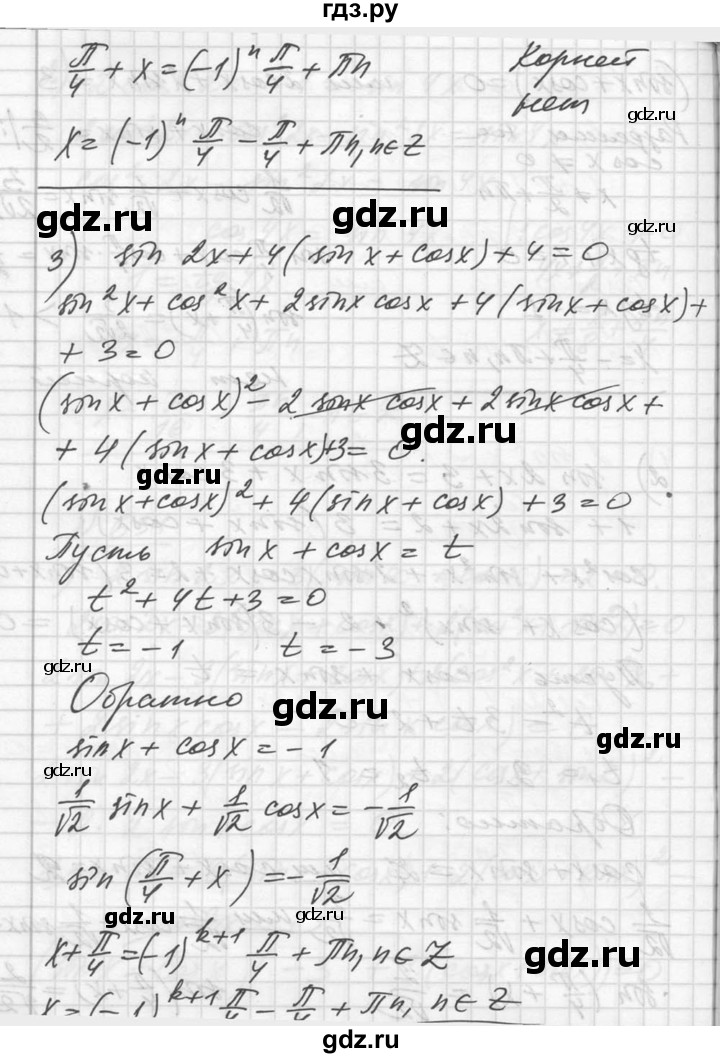 гдз.ру
π/4 + x = (-1)^n π/4 + πn
Корней
нет
gdz.ru
x = (-1)^n π/4 - π/4 + πn, n ∈ Z
gdz.ru
gdz.ru
gdz.ru
3) sin 2x + 4(sin x + cos x) + 4 = 0
sin²x + cos²x + 2 sin x cos x + 4(sin x + cos x) +
+ 3 = 0
(sin x + cos x)² - 2 sin x cos x + 2 sin x cos x +
gdz.ru
+ 4(sin x + cos x) + 3 = 0.
gdz.ru
(sin x + cos x)² + 4(sin x + cos x) + 3 = 0
Пусть sin x + cos x = t
t² + 4t + 3 = 0
t = -1 t = -3
gdz.ru
Обратно
gdz.ru
gdz.ru
sin x + cos x = -1
1/√2 sin x + 1/√2 cos x = - 1/√2
sin(π/4 + x) = - 1/√2
gdz.ru
gdz.ru
x + π/4 = (-1)^{k+1} π/4 + πn, n ∈ Z
gdz.ru
x = (-1)^{k+1} π/4 - π/4 + πn, n ∈ Z
gdz.ru